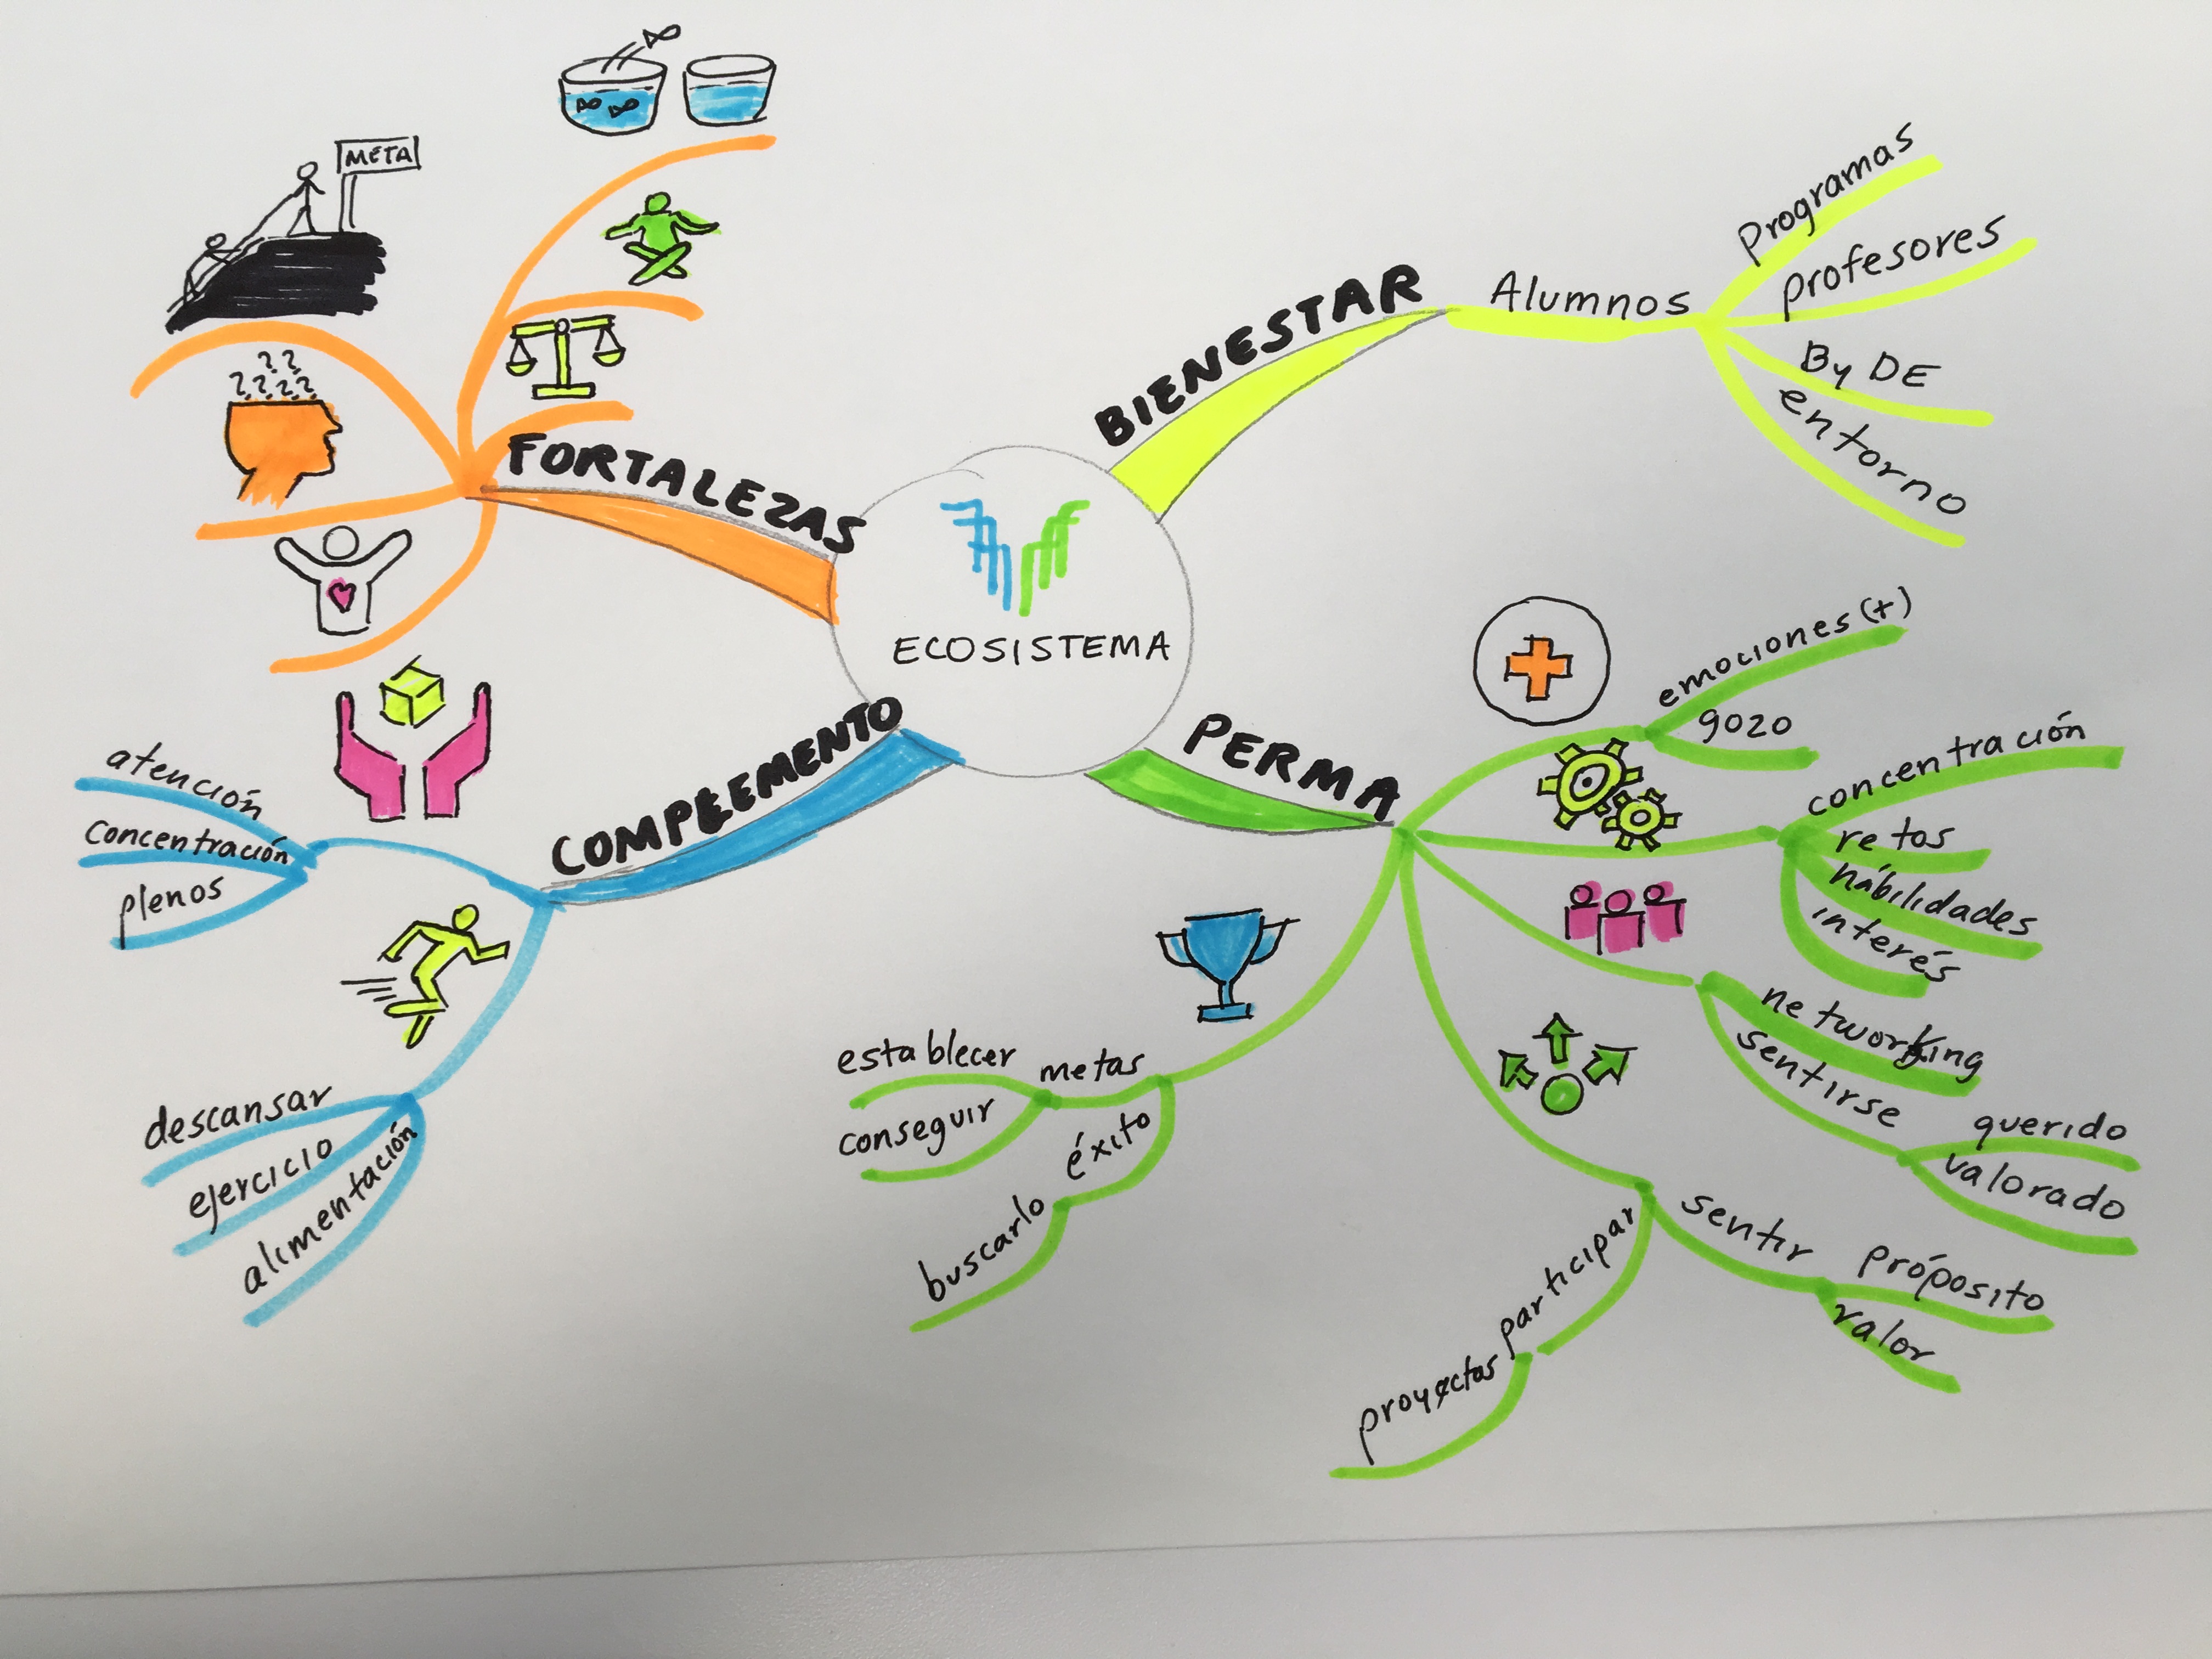 META
????
????
FORTALEZAS
BIENESTAR
Alumnos
Programas
profesores
By DE
entorno
ECOSISTEMA
PERMA
emociones (+)
gozo
concentración
retos
hábilidades
interés
networking
sentirse
querido
valorado
sentir
própósito
valor
participar
proyectos
metas
establecer
conseguir
éxito
buscarlo
COMPLEMENTO
atención
concentración
plenos
descansar
ejercicio
alimentación